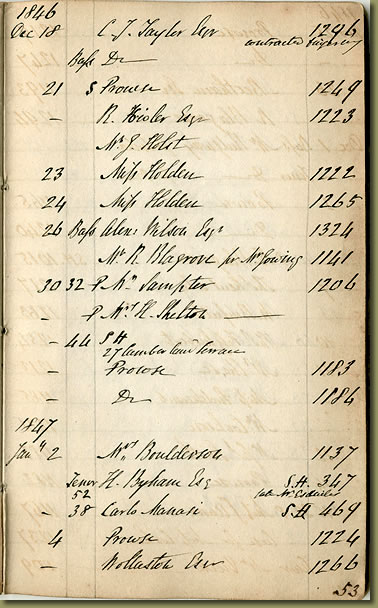 1846
Dec 18 C. J. Taylor Esqr 1296
contracted fingering
Bass Do
21 S Prowse 1249
– R. Hisler Esqr 1223
Mr J. Holst
23 Miss Holden 1222
24 Miss Holden 1265
26 Bass Alexr Wilson Esqr 1324
Mr R Blagrove pr Mr Gowing 1141
30 32 P Mr Sampter 1206
– P Mrs H. Skelton —
– 44 S H
27 Cumberland Terrace
– Prowse 1183
– Do 1184
1847
Jany 2 Mrs Boulderson 1137
Tenor H. Byham Esq S.H. 347
52 late Mr
– 38 Carlo Manasi S.H 469
4 Prowse 1224
– Wollaston Esqr 1266
53